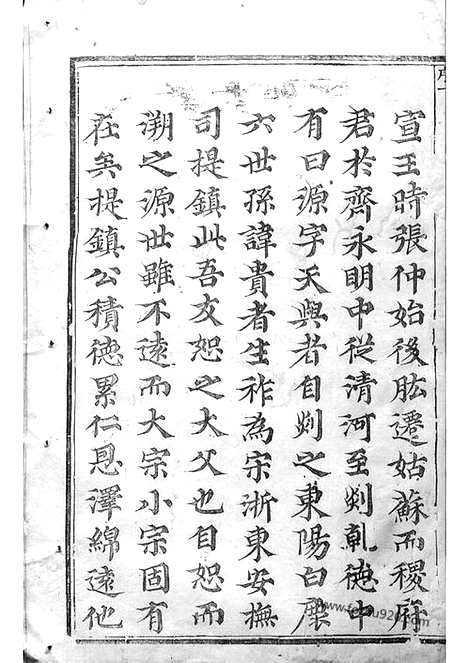 宣王時張仲始後肱遷姑蘇而稷府
君於齊永明中從清河至剡乹德中
有曰源字天與者自剡之東陽白
六世孫諱貴者生祚為宗浙東安撫
司提鎮此吾友恕之大父也自恕而
溯之源世雖不遠而大宗小宗固有
在矣提鎮公積德累仁恩澤綿遠他